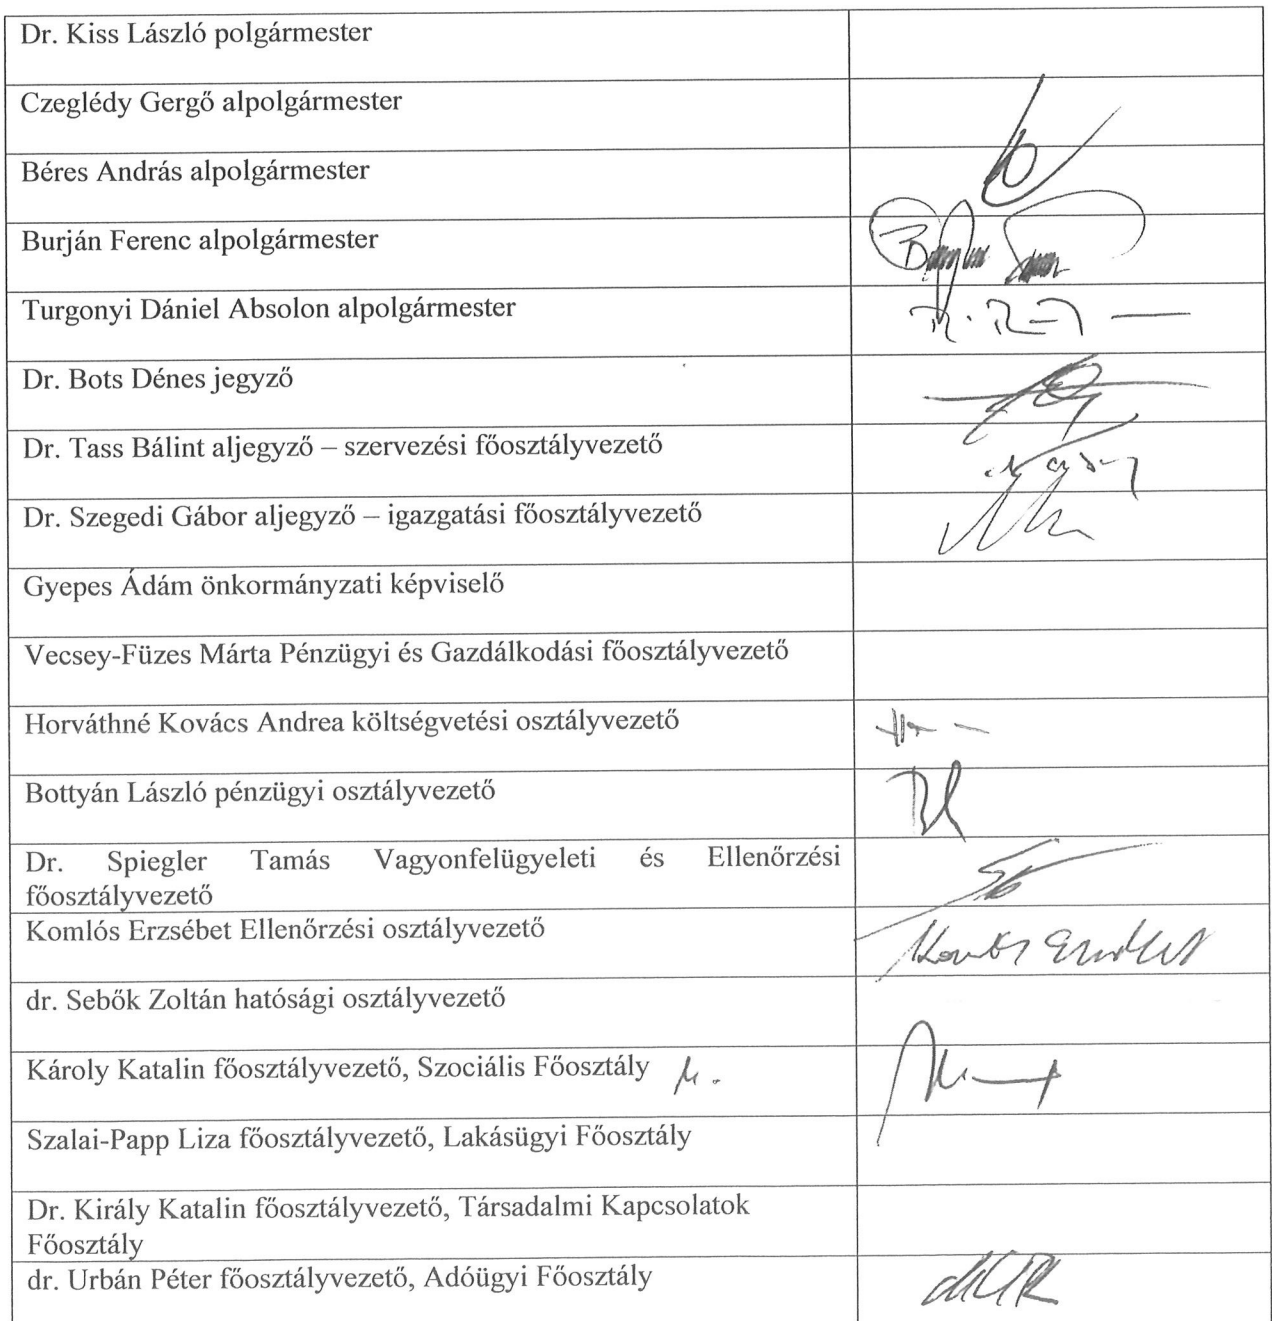 Dr. Kiss László polgármester
Czeglédy Gergő alpolgármester
Béres András alpolgármester
Burján Ferenc alpolgármester
Turgonyi Dániel Absolon alpolgármester
Dr. Bots Dénes jegyző
Dr. Tass Bálint aljegyző – szervezési főosztályvezető
Dr. Szegedi Gábor aljegyző – igazgatási főosztályvezető
Gyepes Ádám önkormányzati képviselő
Vecsey-Füzes Márta Pénzügyi és Gazdálkodási főosztályvezető
Horváthné Kovács Andrea költségvetési osztályvezető
Bottyán László pénzügyi osztályvezető
Dr. Spiegler Tamás Vagyonfelügyeleti és Ellenőrzési
főosztályvezető
Komlós Erzsébet Ellenőrzési osztályvezető
dr. Sebők Zoltán hatósági osztályvezető
Károly Katalin főosztályvezető, Szociális Főosztály
Szalai-Papp Liza főosztályvezető, Lakásügyi Főosztály
Dr. Király Katalin főosztályvezető, Társadalmi Kapcsolatok
Főosztály
dr. Urbán Péter főosztályvezető, Adóügyi Főosztály